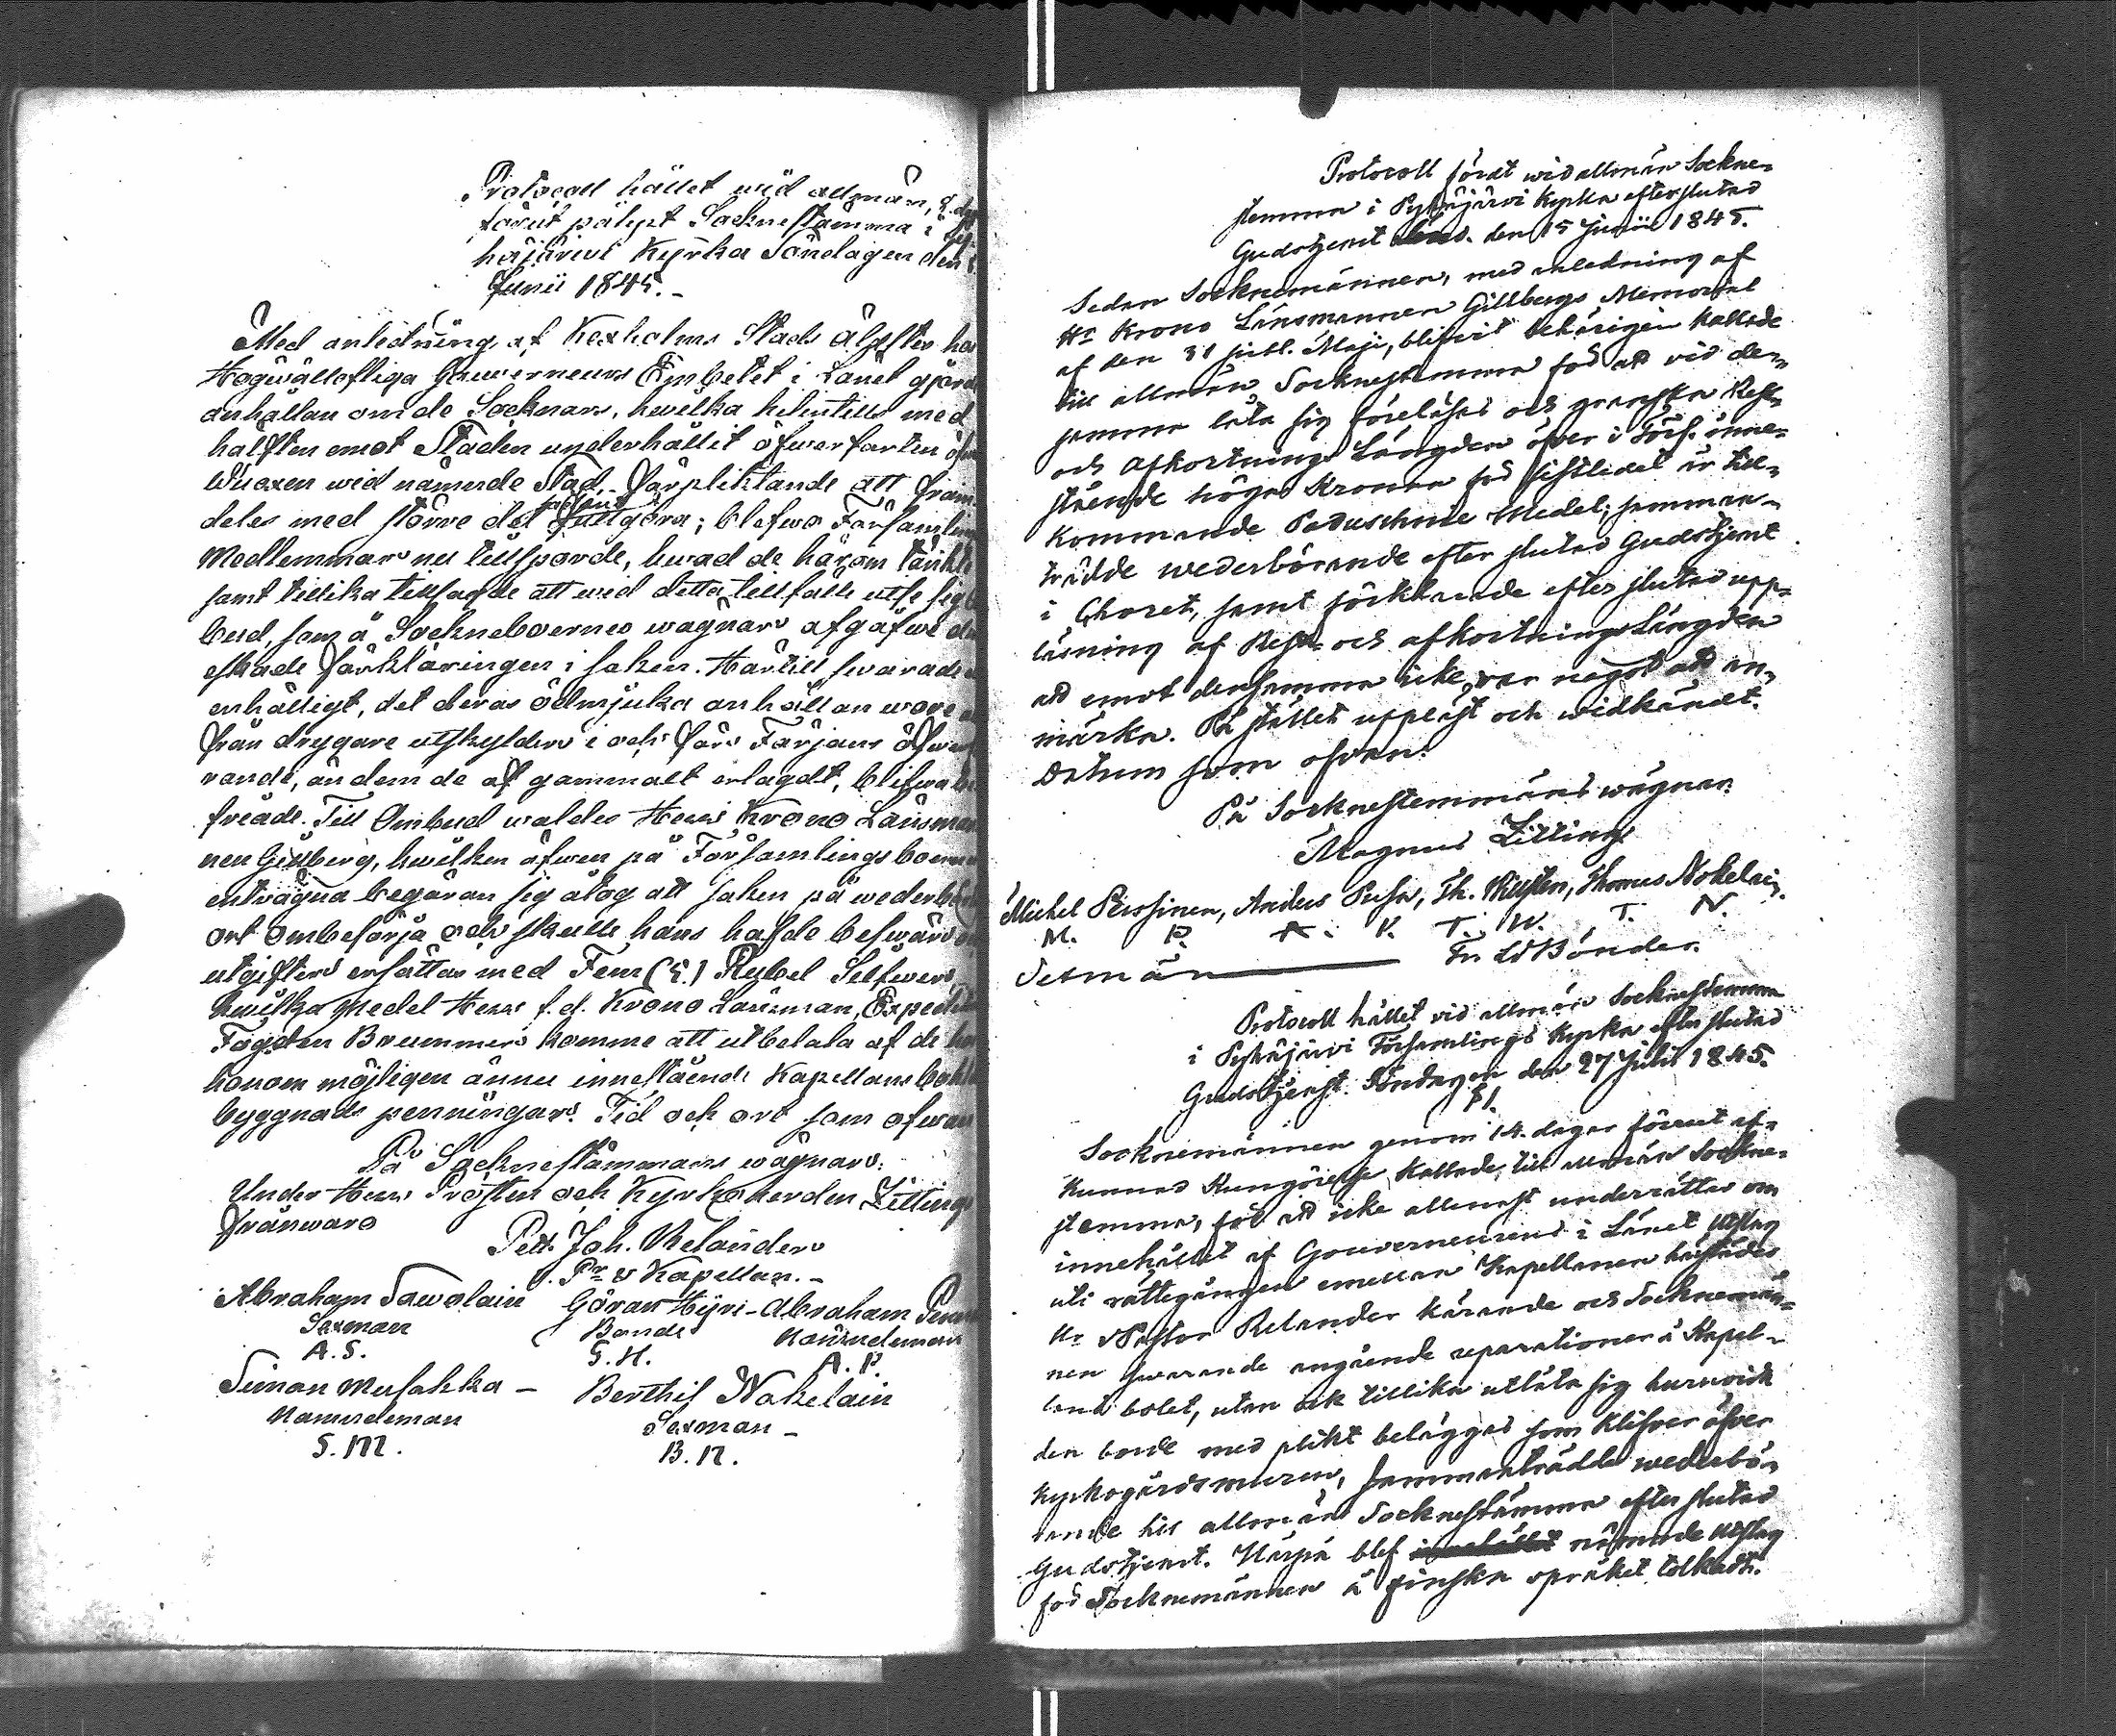 Protocoll hållet wid allmän, 8. dgr
förut pålyst Socknestämma i Py-
häjärwi Kyrka Söndagen den
Junii 1845.-
Med anledning af Kexholms Stads Älste hos
Högwälloflige Gouverneurs Embetet i Länet gjorde
anhållan om de Socknars, hwilka hitintills med
hälften emot Staden underhållit öfwerfarten öfwer
Wuoxen wid nämnde Stad, förpliktande att fram-
deles med större del fullgöra; blefwo Församlings
Medlemmar nu tillsporde, hwad de härom tänkte
samt tillika tillsagde att wid detta tillfälle utse sig
bud, som å Sockneboernes wägnar afgåfwe den
eskade förklaringen i saken. Härtill swarades
enhälligt, det deras ödmjuka anhållan wore att
från drygare utskylder i och för Färjans öfwerfö-
rande, än dem de af gammalt erlagdt, blifwa be-
friade. Till Ombud waldes Herr Krono Länsman-
nen Gillberg, hwilken äfwen på Församlingsboernes
enträgna begäran sig åtog att saken på wederbörlig
ort ombesörja och skulle hans hafde beswär och
utgifter ersättas med Fem (5.) Rubel Silfwer,
hwilka medel Herr f.d. Krono Länsman, Expeditions
Fogden Brummer komme att utbetala af de hos
honom möjligen ännu innestående Kapellans bohls
byggnads penningar. Tid och ort som ofwan
På Socknestämmans wägnar:
Under Herr Prosten och Kyrkoherden Zittings
frånwaro
Pett. Joh. Relander
v. Pr. & Kapellan.-
Abraham Sawolain Göran Hÿvi - Abraham
Sexman Bonde Nämndeman
A. S. G. H. A. P.
Simon Musakka - Berthil Nokelain
Nämndeman Sexman -
S. M. B. N.
Protocoll fördt wid allmän Sockne-
stemma i Pyhäjärvi Kyrka efter slutad
Gudstjenst den 15 Junii 1845.
Sedan Socknemännen, med anledning af
Hr Krono Länsmannen Gillbergs Memorial
af den 31 sistl. Maji, blifvit behörigen kallade
till allmän Socknestemma för att vid den-
samma låta sig föreläsas och granska Rest-
och Afkortnings Längden öfver i Förs. inne-
stående höga Kronan för sistlidet år till-
kommande Paduschnie Medel; samman-
trädde wederbörande efter slutad Gudstjenst
i Choret, samt förklarade efter slutad upp-
läsning af Rest- och afkortnings Längden
att emot densamma icke var något att an-
märka. På stället uppläst och widkändt.
Datum som ofvan.
På Socknestemmans wägnar
Magnus Zitting
Michel Pessinen, Anders Puha, Th. Thomas Nokelain.
M. P. A. P. T. W. T. N.
Sexmän Bönder.
Protocoll hållet vid allmän Socknestemma
i Pyhäjärvi Församlings Kyrka efter slutad
Gudstjenst. Söndagen den 27 Julii 1845.
§1.
Socknemännen genom 14. dagar förut af-
kunnad Kungörelse kallade till allmän Sockne-
stemma, för att icke allenast underrättas om
innehållet af Gouverneurens i Länet Utslag
uti rättegången emellan Kapellanen härstädes
Hr vPastor Relander kärande och Socknemän-
nen swarande angående reparationer å Kapel-
lans bolet, utan ock tillika utlåta sig huruvida
den borde med plikt beläggas som klifver öfver
kyrkogårdsmuren, sammanträdde wederbö-
rande till allmän Socknestämma efter slutad
Gudstjenst. Härpå blef nämnde Utslag
för Socknemännen å finska språket tolkadt.